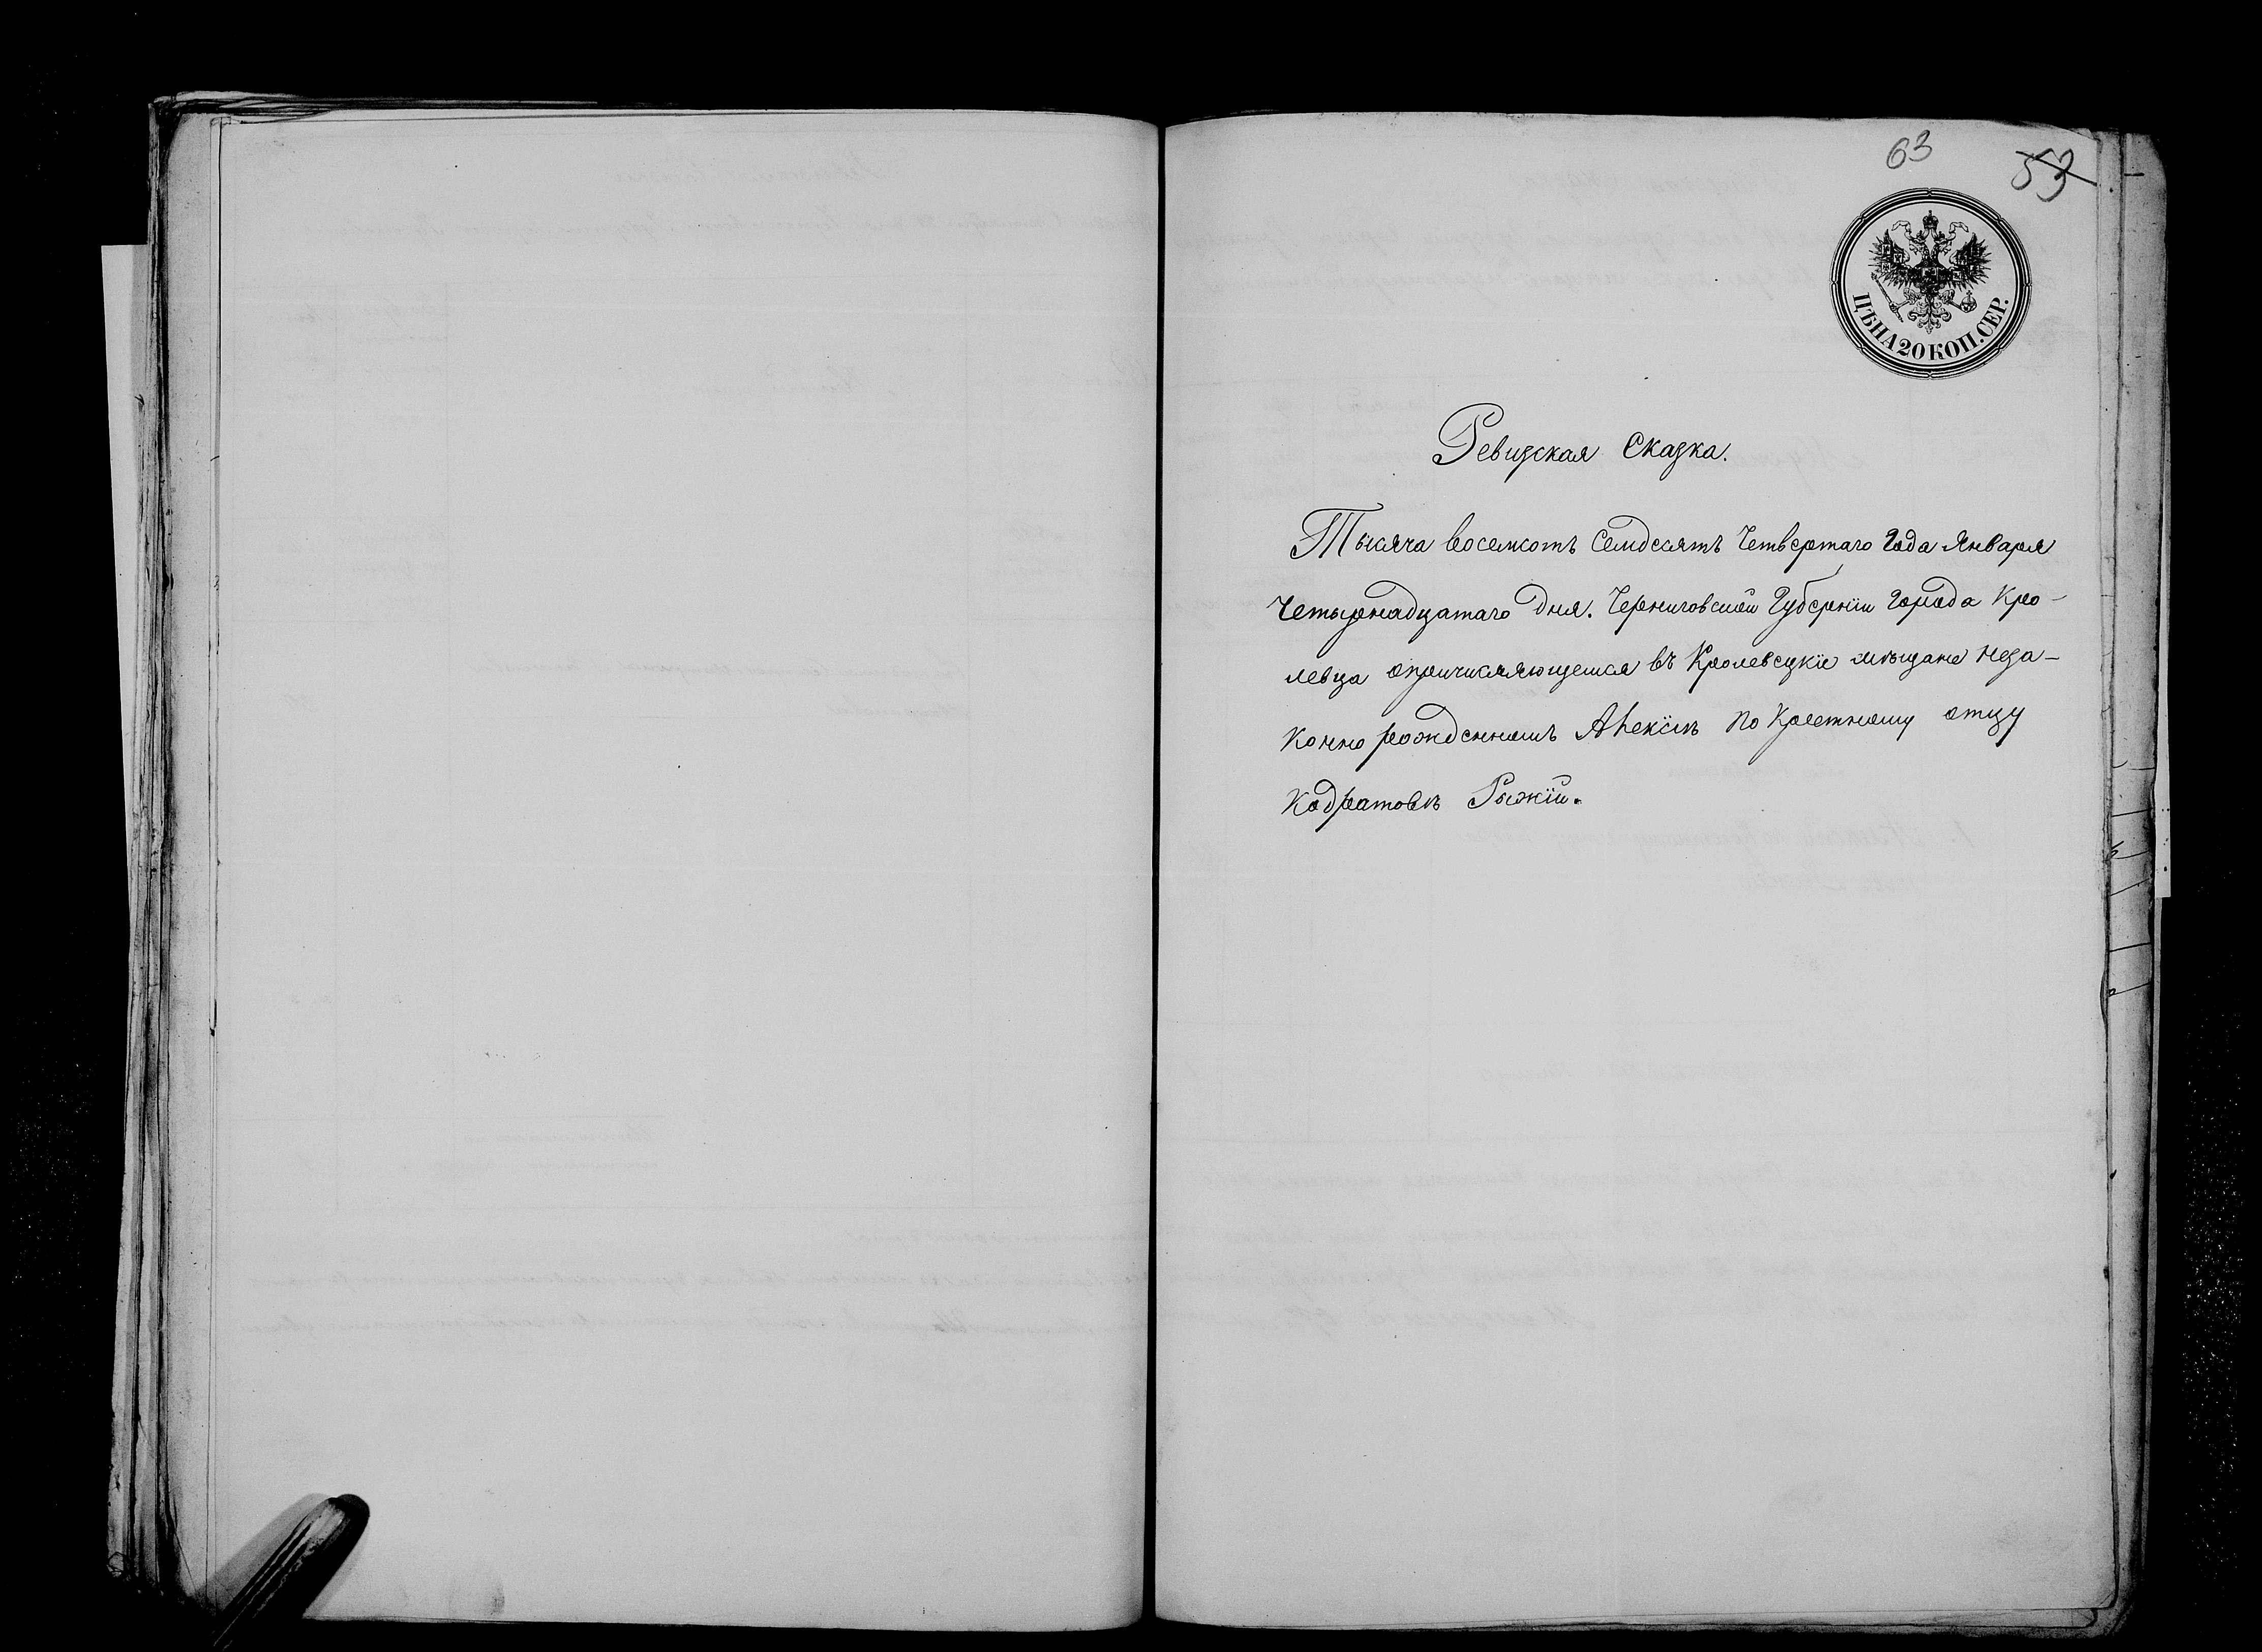 63
53
ЦѢНА 20 КОП. СЕР.
Ревизская Сказка.
Тысяча восемсотъ Семдесятъ Четвертаго Года Января
Четырнадцатаго Дня. Черниговской Губернїи Города Кро-
левца опричисляющемся въ Кролевецкїе мѣщане неза-
конно рожденномъ Алексѣѣ по Крестному отцу
Кодратовѣ Рыжїй.